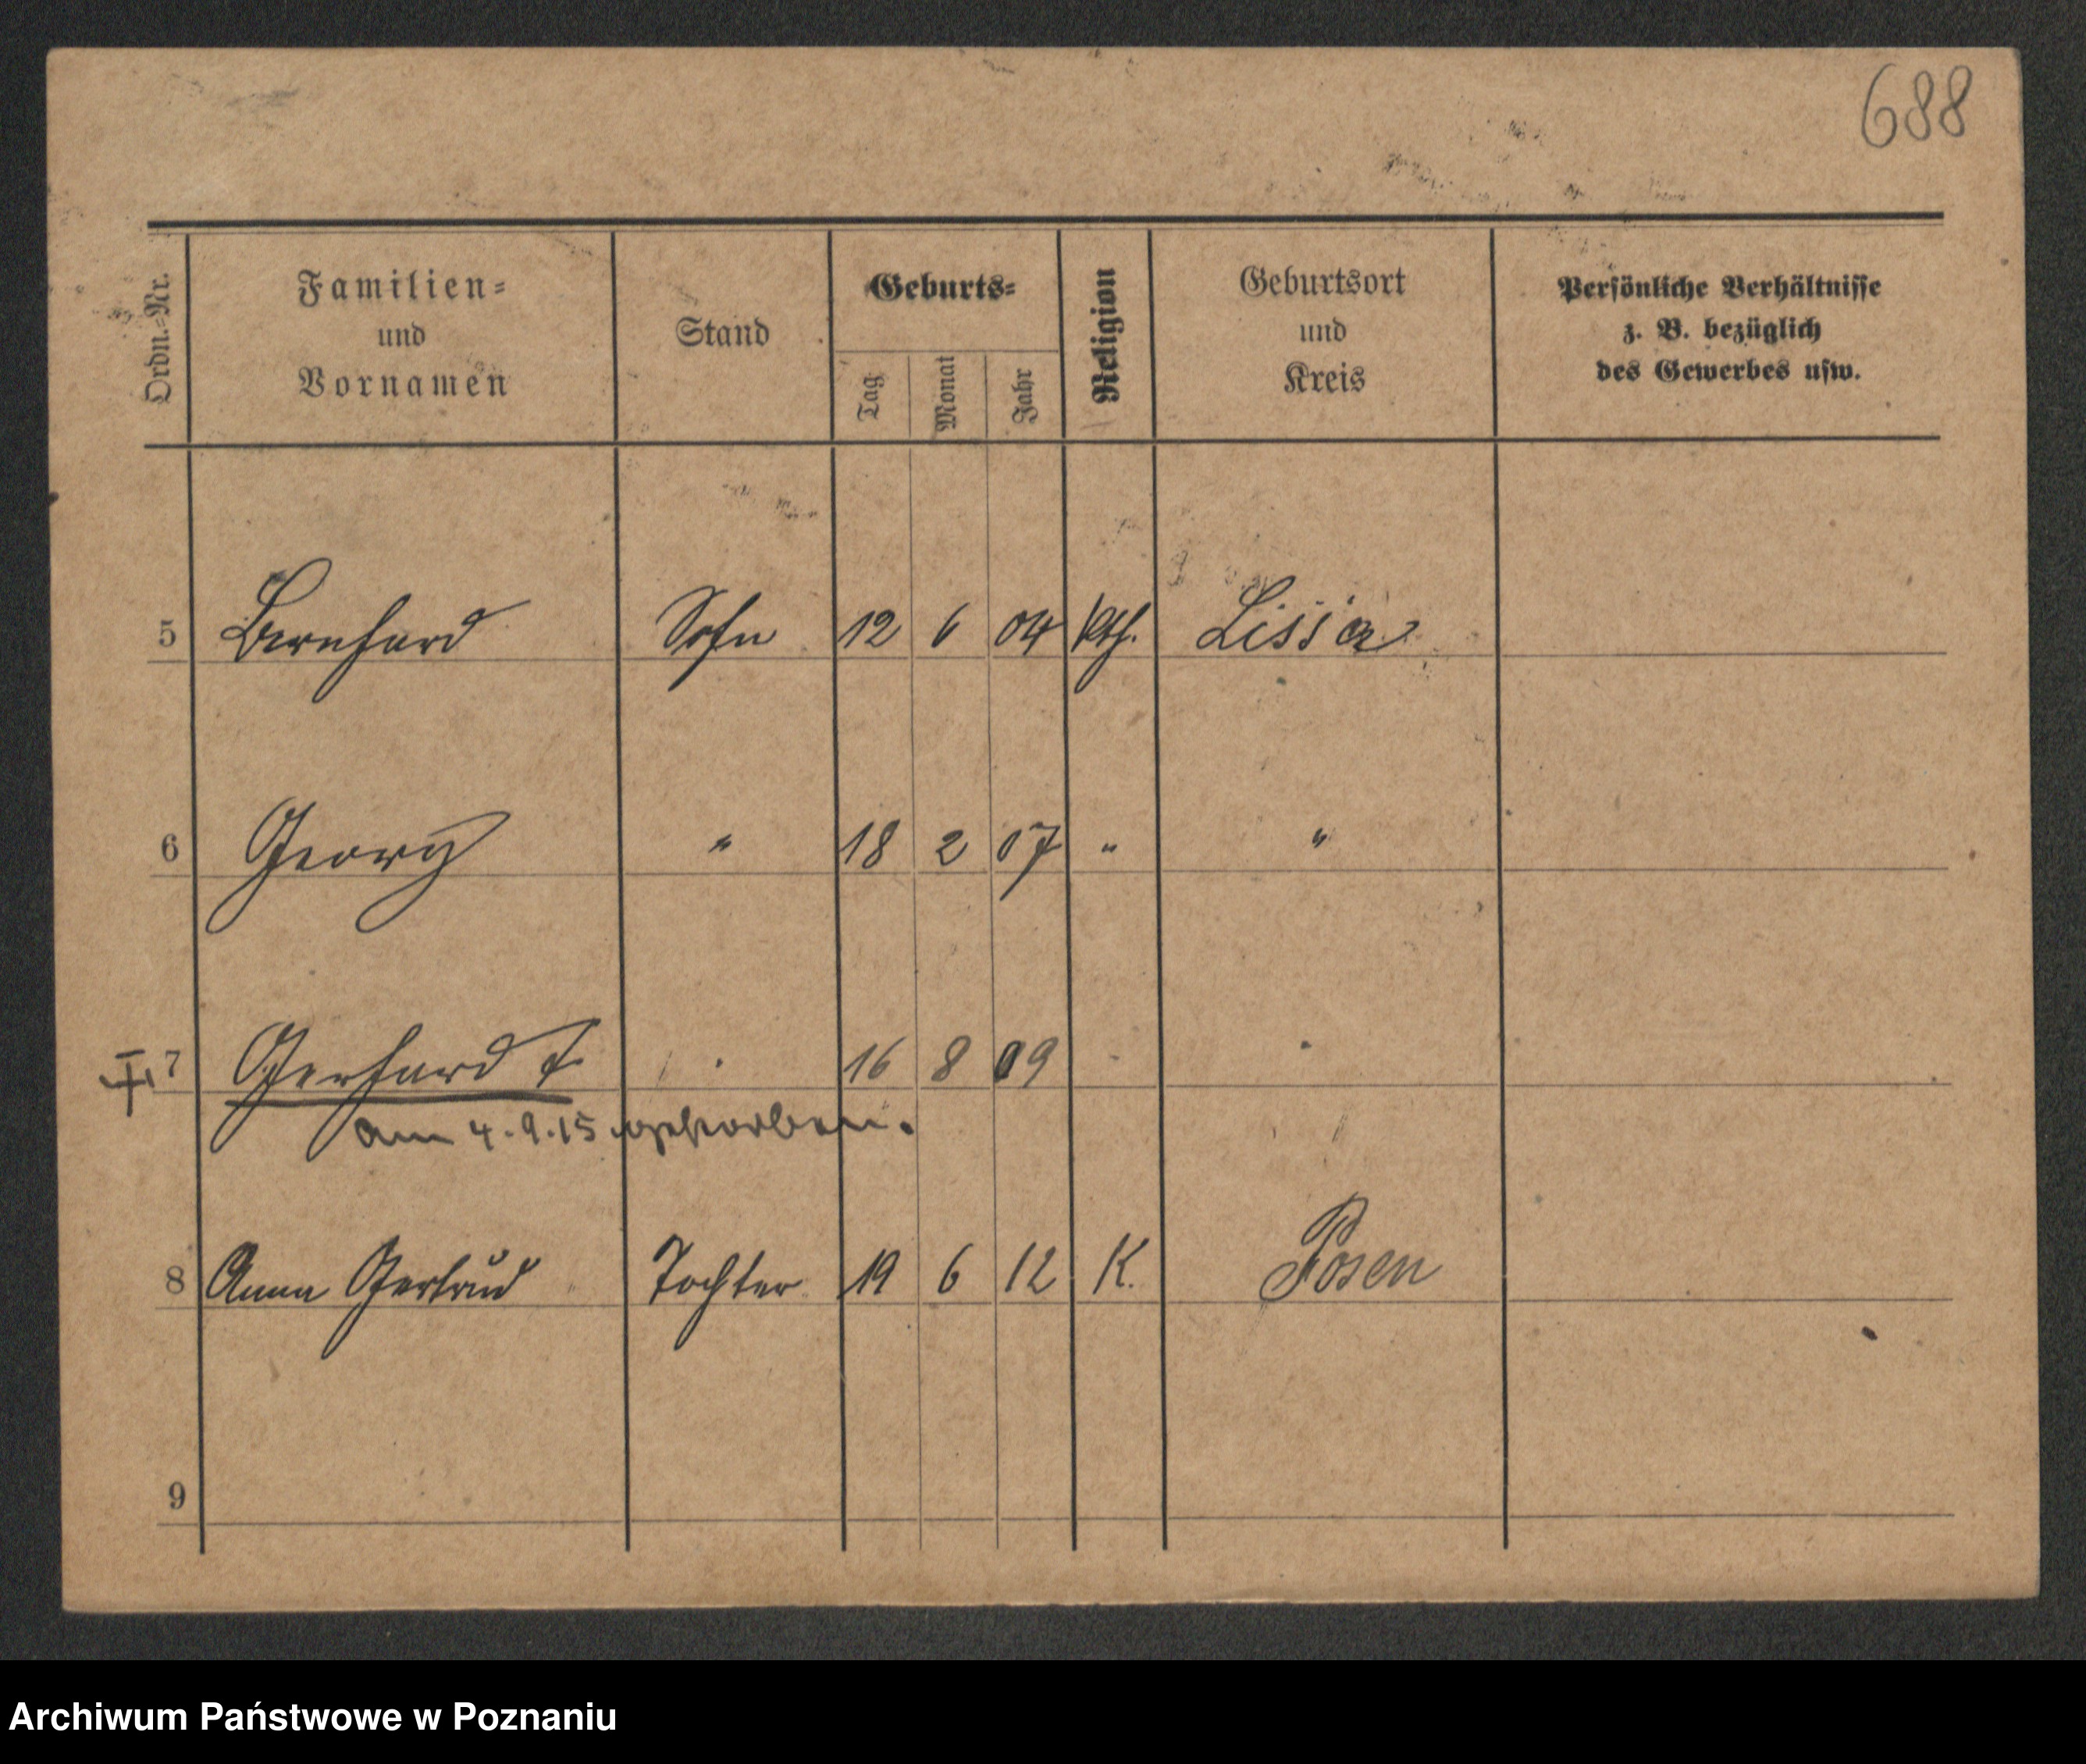 688
Ordn.-Nr.
Familien-
und
Vornamen
Stand
Geburts-
Tag
Monat
Jahr
Religion
Geburtsort
und
Kreis
Persönliche Verhältnisse
z. B. bezüglich
des Gewerbes usw.
5 Bernhard Sohn 12 6 04 Kth. Lissa
6 Georg " 18 2 07 " "
7 Gerhard † " 16 8 09 " "
am 4.9.15 gestorben.
8 Anna Gertrud Tochter 19 6 12 K. Posen
9
Archiwum Państwowe w Poznaniu